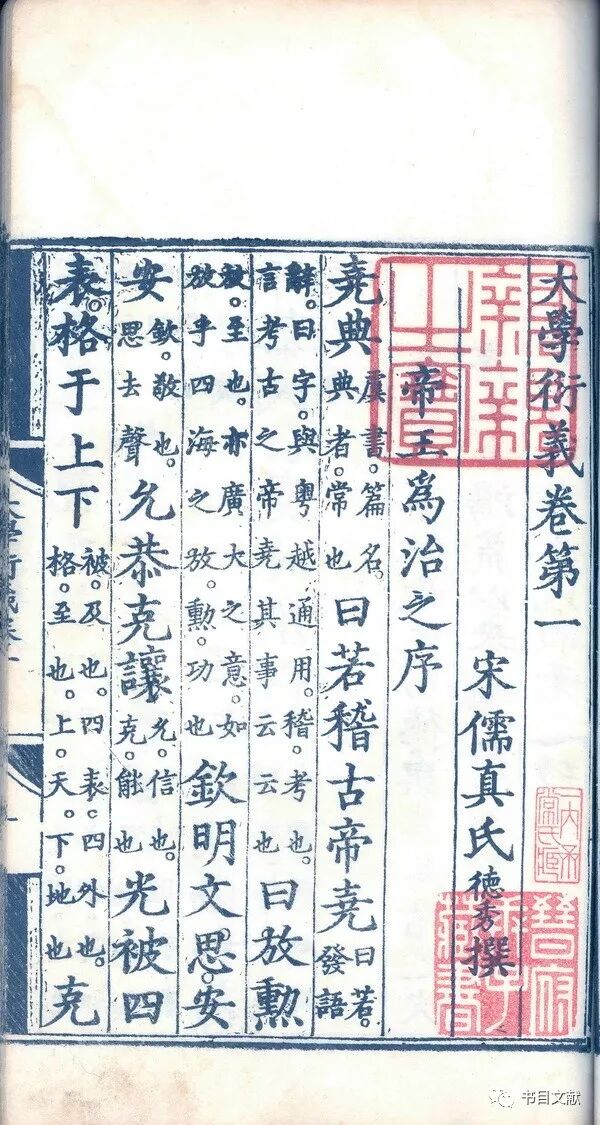 大學衍義卷第一
宋儒真氏德秀撰
帝王爲治之序
堯典虞書。篇名。典者。常也曰若稽古帝堯曰若。發語
辭。曰字。與粵越通用。稽。考也。言考古之帝堯其事云云也曰放勲
放。至也。亦廣大之意。如放乎四海之放。勲。功也欽明文思。安
安欽。敬也。思去聲允恭克讓允。信也。克。能也光被四
表。格于上下被。及也。四表。四外也。格。至也。上。天。下。地也克
书目文献